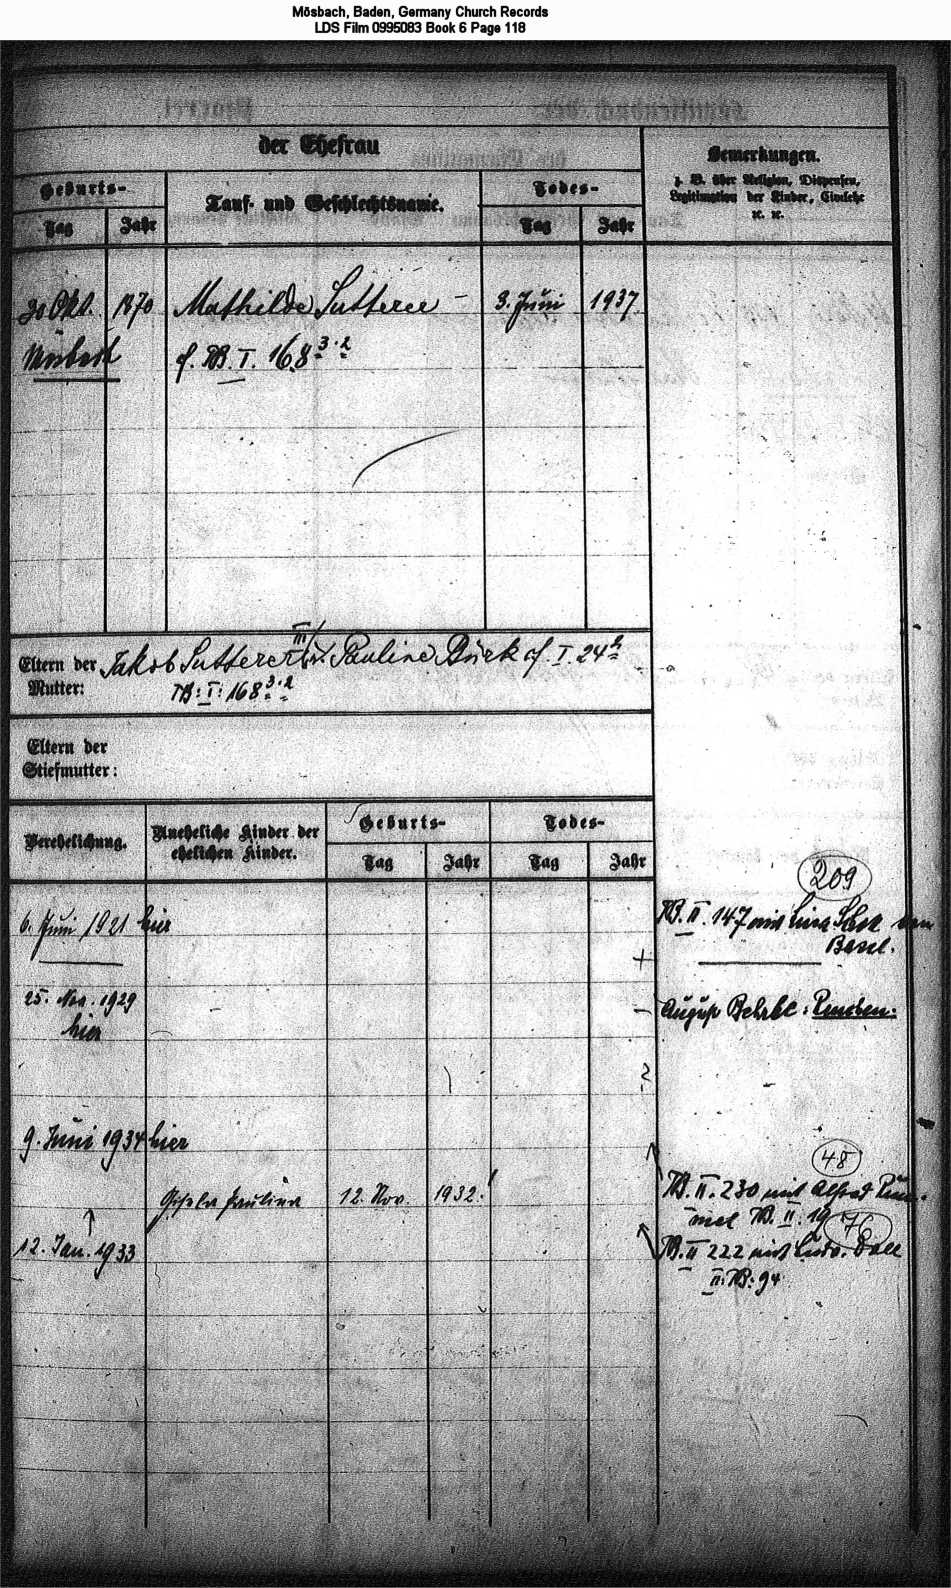 Mösbach, Baden, Germany Church Records
LDS Film 0995083 Book 6 Page 118
der Ehefrau
Bemerkungen.
z. B. über Religion, Dispensen,
Legitimation der Kinder, Civilehe
ꝛc. ꝛc.
Geburts-
Tauf- und Geschlechtsname.
Todes-
Tag
Jahr
Tag
Jahr
30 Okt. 1870 Mathilde Sutterer 3. Juni 1937
cf. FB. I. 168 3.2
Eltern der Mutter:
Jakob Sutterer III Pauline Bürk cf. I. 24
FB: I: 168 3.2
Eltern der
Stiefmutter:
Verehelichung.
Uneheliche Kinder der
ehelichen Kinder.
Geburts-
Todes-
Tag
Jahr
Tag
Jahr
209
6. Juni 1921 hier
FB. II. 147 mit Lina
Basel.
25. Nov. 1929
hier
August
9. Juni 1934 hier
48
Paulina 12. Nov. 1932.
FB. II. 230 mit Alfred
FB. II. 19
76
12. Jan. 1933
FB. II 222 mit Ludw. Doll
II: FB: 94